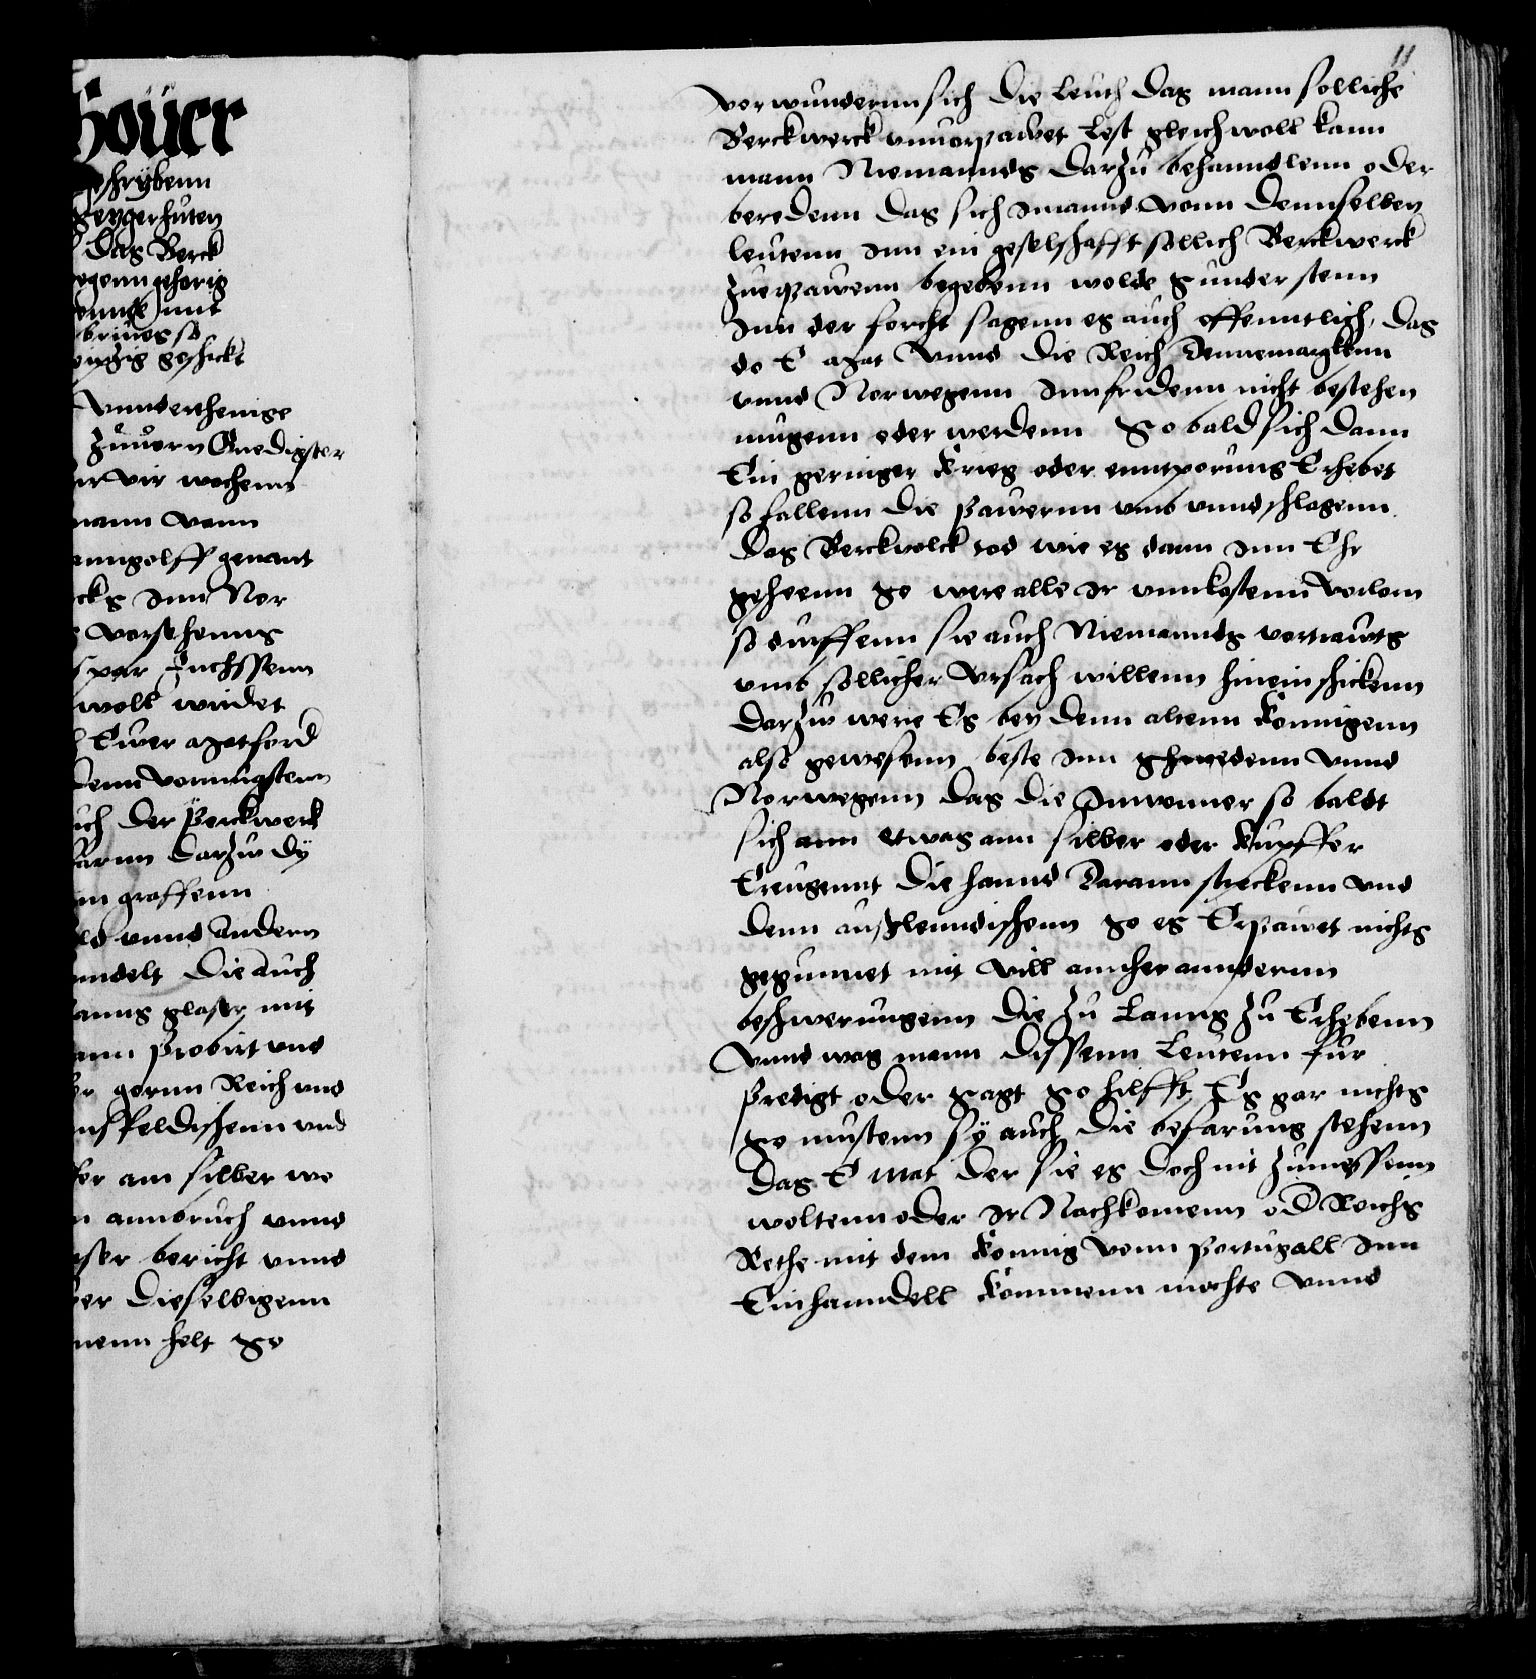 Hoüer
geschrybenn
seygerhuten
Das Berck
wegenn gehorig
mit
brieues so
geschickt
Vnnderthenige
Zuuorn Gnedigster
vir wochenn
mann vonn
anngolff genant
Inn Nor
vorsehenng
Fuchsssenn
woll wirdet
Ewer Mat ford
denn vornugstenn
uch der Perckwerck
darzw dy
inn graffenn
vnnd andern
nndelt Die auch
anns glaser mit
ann Probirt vnd
gernn Reich vnd
nsfeldischenn vnd
am silber wo
annbruch vnnd
bericht vnnd
Dieselbigenn
nenn helt so
11
vorwundernn sich die leuth das mann solliche
Berckwerck vnuorpawet lest gleichwoll kann
mann Niemannds darzu behanndlenn oder
beredenn das sich Imannd vonn dennselben
leutenn Inn ein geselschafft sollich Berckwerck
Zuerpawenn begebenn wolde sunder stenn
Inn der forcht sagenn es auch offenntlich, das
do E Mat vnnd die Reich Dennemargkenn
vnnd Norwegenn Inn fridenn nicht bestehen
mugenn oder werdenn So bald sich dann
Ein geringer krieg oder enntporung Erhebet
so fallenn die pawernn vmb vnnd schlagenn
das Berckvolck tod wie es dann Inn Ehr
geschenn so were alle Ir vnnkostenn vorlorn
so durffenn sie auch Niemannds vortrauts
vmb sollicher vrsach willenn hinein schickenn
darzw were Es bey denn altenn konnigenn
also gewesenn beste Inn schwedenn vnnd
Norwegenn das die Innwoner so baldt
sich ann etwas ann silber oder kupffer
Ereugennt die hannd darann streckenn vnd
denn außlenndischenn so es Erpawet nichts
gegunnet mit vill annher annderenn
beschwerungenn die zu lanng zu Erhebenn
vnnd was mann dissenn leutenn fur
predigt oder sagt so hilfft Es gar nichts
so mustenn sy auch die befarung stehenn
das E Mat der sie es doch nit zumessenn
woltenn oder Ir Nachkomenn od Reichs
Rethe mit dem konnig vonn portugall Inn
Ein hanndell kommenn mochte vnnd